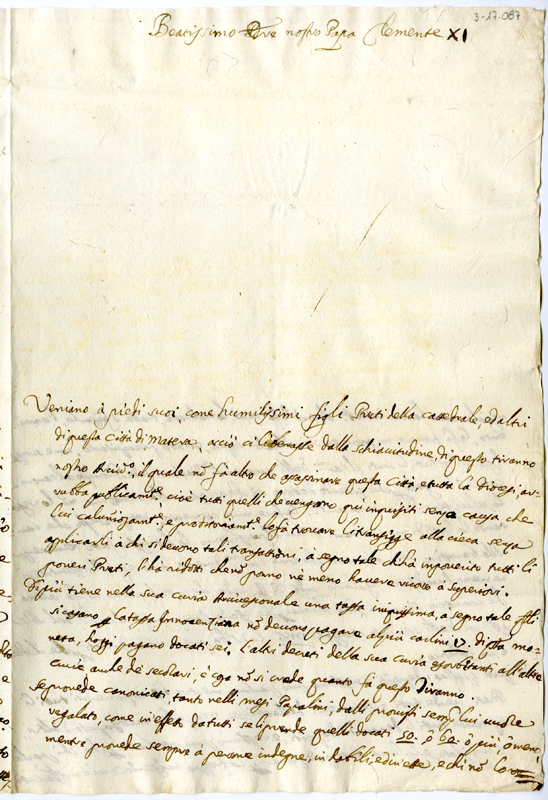 3-17-087
Beatissimo Pre nostro Papa Clemente XI
Veniamo à piedi suoi, come humilissimi figli Preti della Cattedrale, ed altri
di questa Città di Matera, acciò ci liberasse dalla schiavitudine di questo tiranno
nostro Arciv.o, il quale nõ fà altro che assassinare questa Città, e tutta la Diocesi, ar-
rubba publicam.te, cioè tutti quelli che vengono qui inquisiti senza causa, che
lui caluniosam.te, e li transigge alla cieca senza
applicarli à chi si devono tali transattioni, a segno tale ch'hà impoverito tutti li
poveri Preti, l'hà ridotti che nõ ponno ne meno havere ricorso à Superiori.
Di più tiene nella sua Curia Arcivescovale una tassa iniquissima, à segno tale
la tassa Innocentiana nõ devono pagare al più carlini 17. di sta mo-
neta, hoggi pagano docati sei, l'altri decreti della sua Curia esorbitanti all'altre
Curie anche de secolari, è cosa nõ si crede quanto fà questo Tiranno.
Se provede canonicati, tanto nelli mesi Papalini, dalli provisti sempre lui vuole
regalato, come in effetto da tutti se li prende quelli docati 50. ò 60. ò più, ò meno,
mentre provede sempre à persone indegne, inhabili, e chi nõ